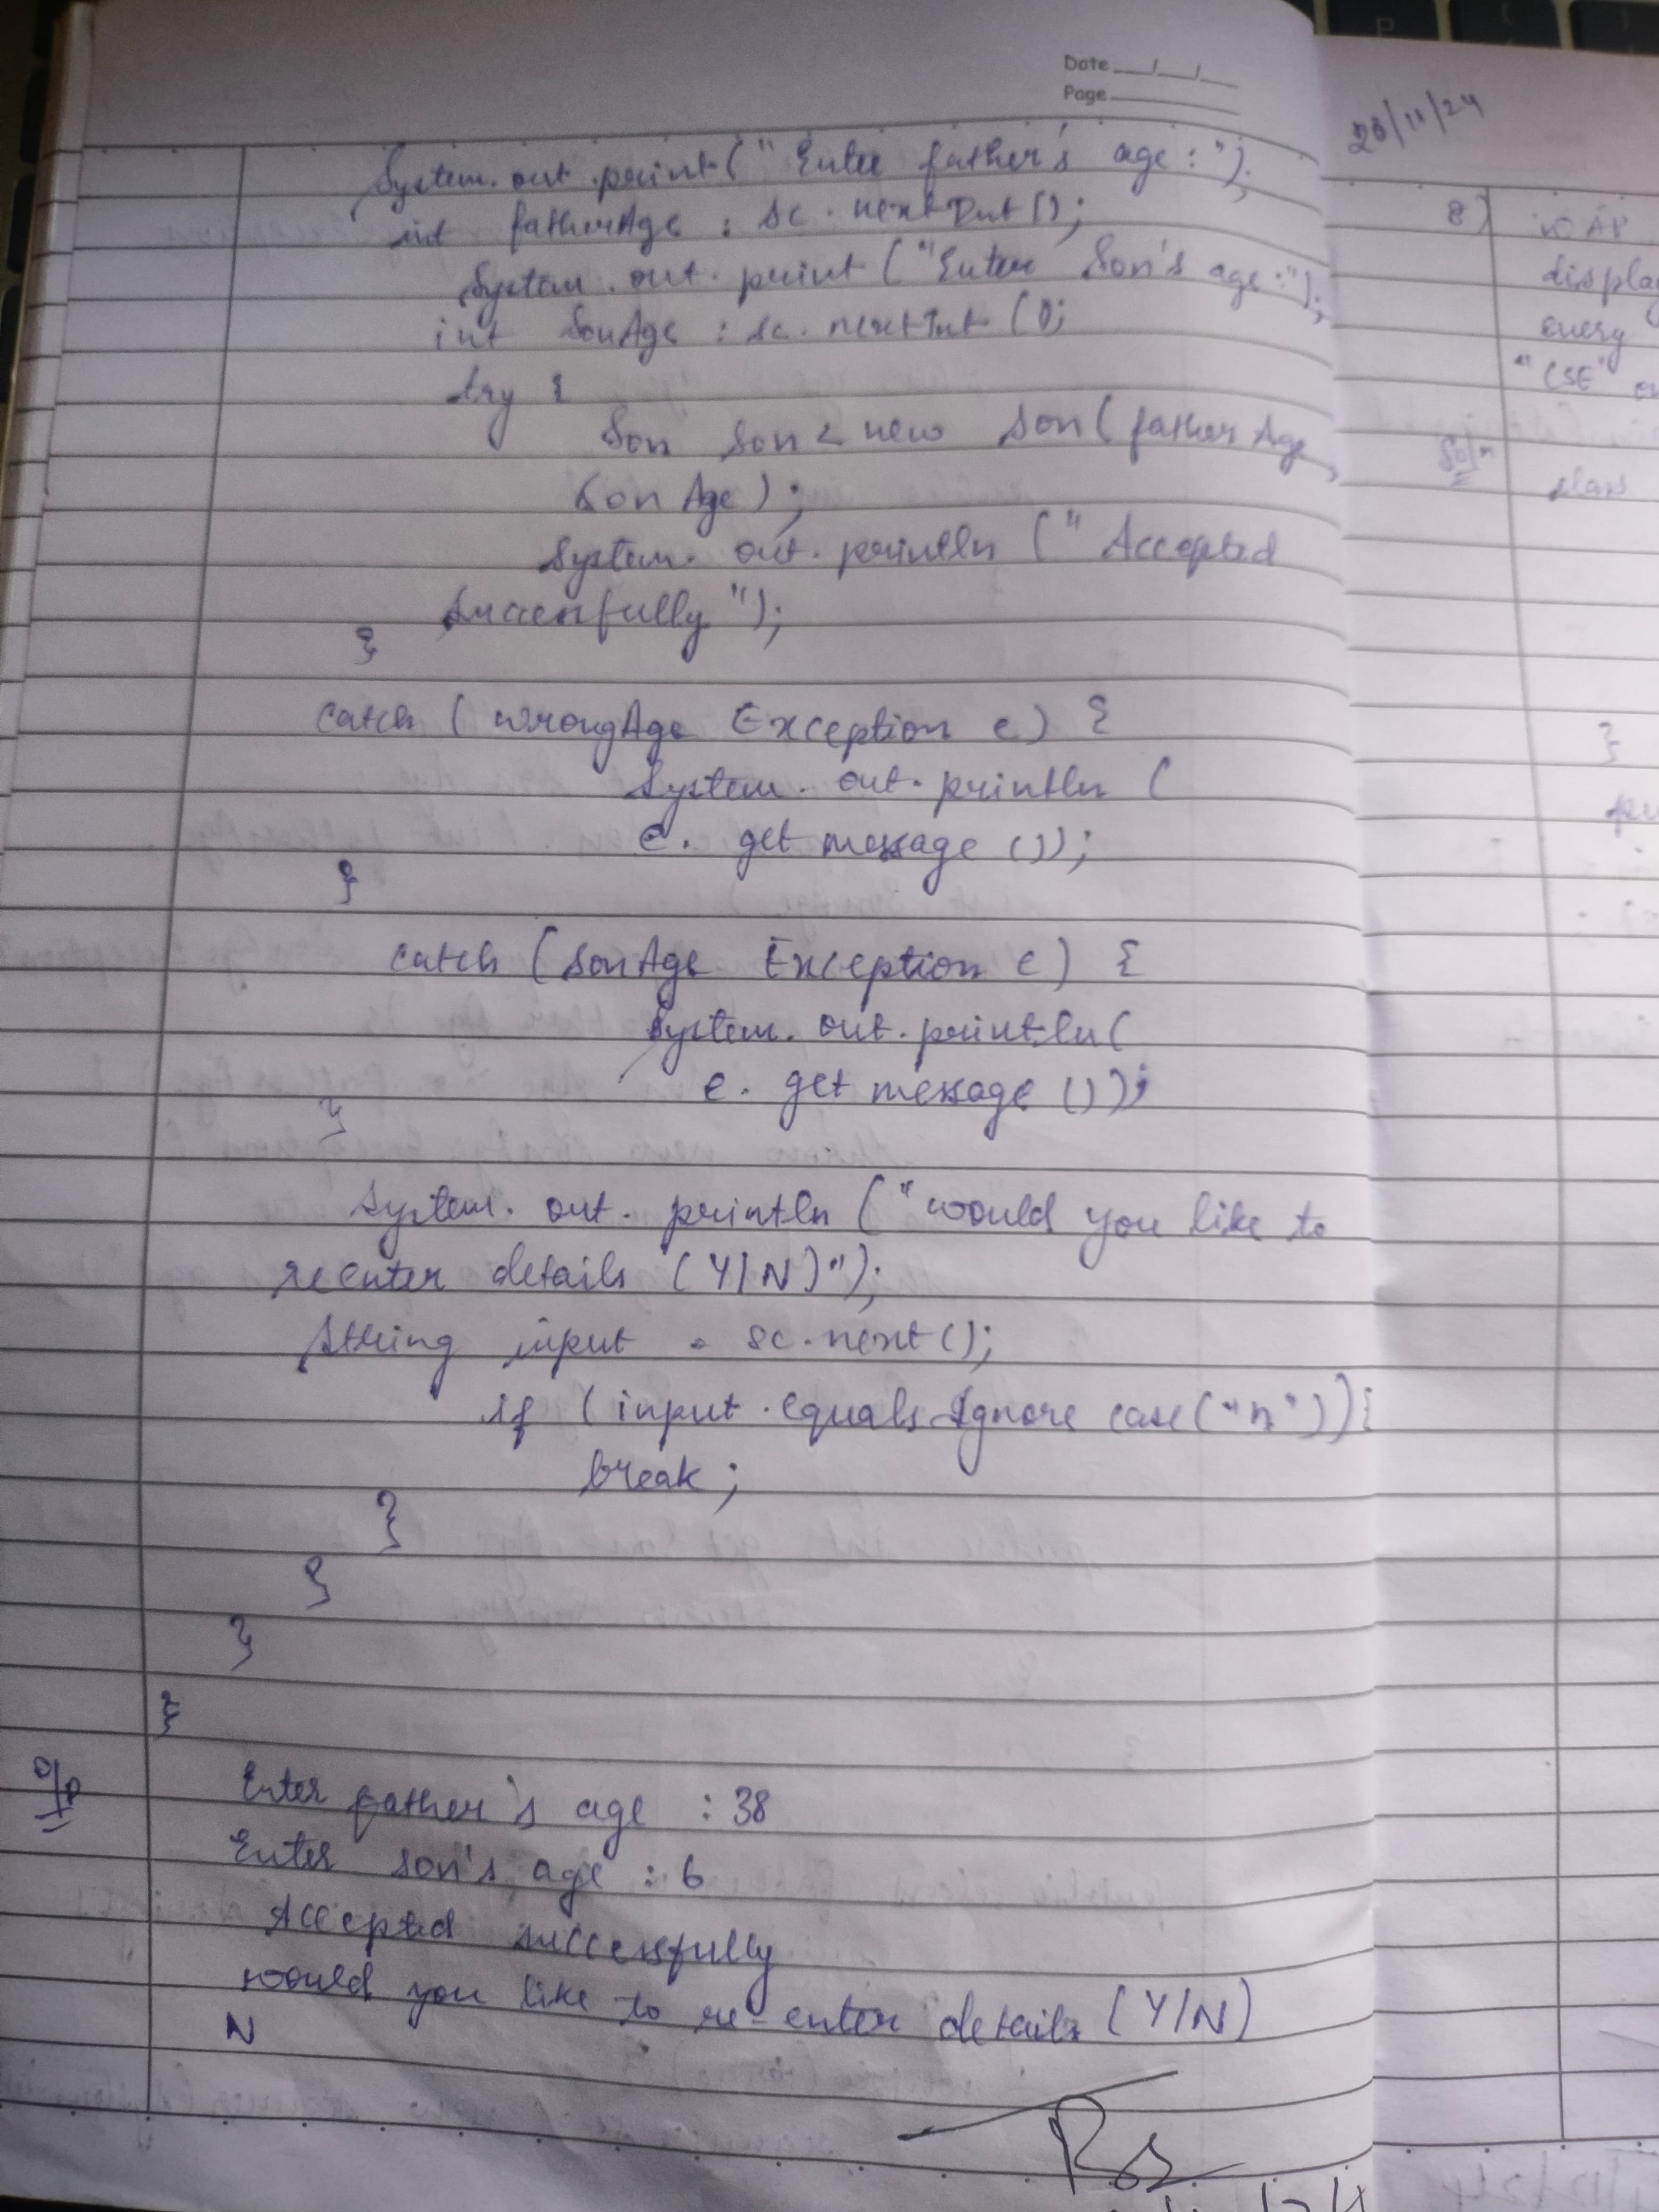 Date
Page
System.out.print(" Enter father's age : ");
int fatherAge : sc.nextInt();
System.out.print ("Enter Son's age :");
int SonAge : sc.nextInt ();
try {
Son son = new Son( fatherAge,
SonAge );
System.out.println (" Accepted
successfully ");
}
catch ( wrongAge Exception e) {
System.out.println (
e. get message ());
}
catch (SonAge Exception e) {
System.out.println(
e. get message ());
}
System.out.println ("would you like to
reenter details (Y/N)");
String input = sc.next();
if (input.equals Ignore case("n")){
break;
}
}
}
}
O/P
Enter father's age : 38
Enter son's age : 6
Accepted successfully
would you like to re-enter details (Y/N)
N
Rs
8)
WAP
display
every
"CSE"
Soln
class
}